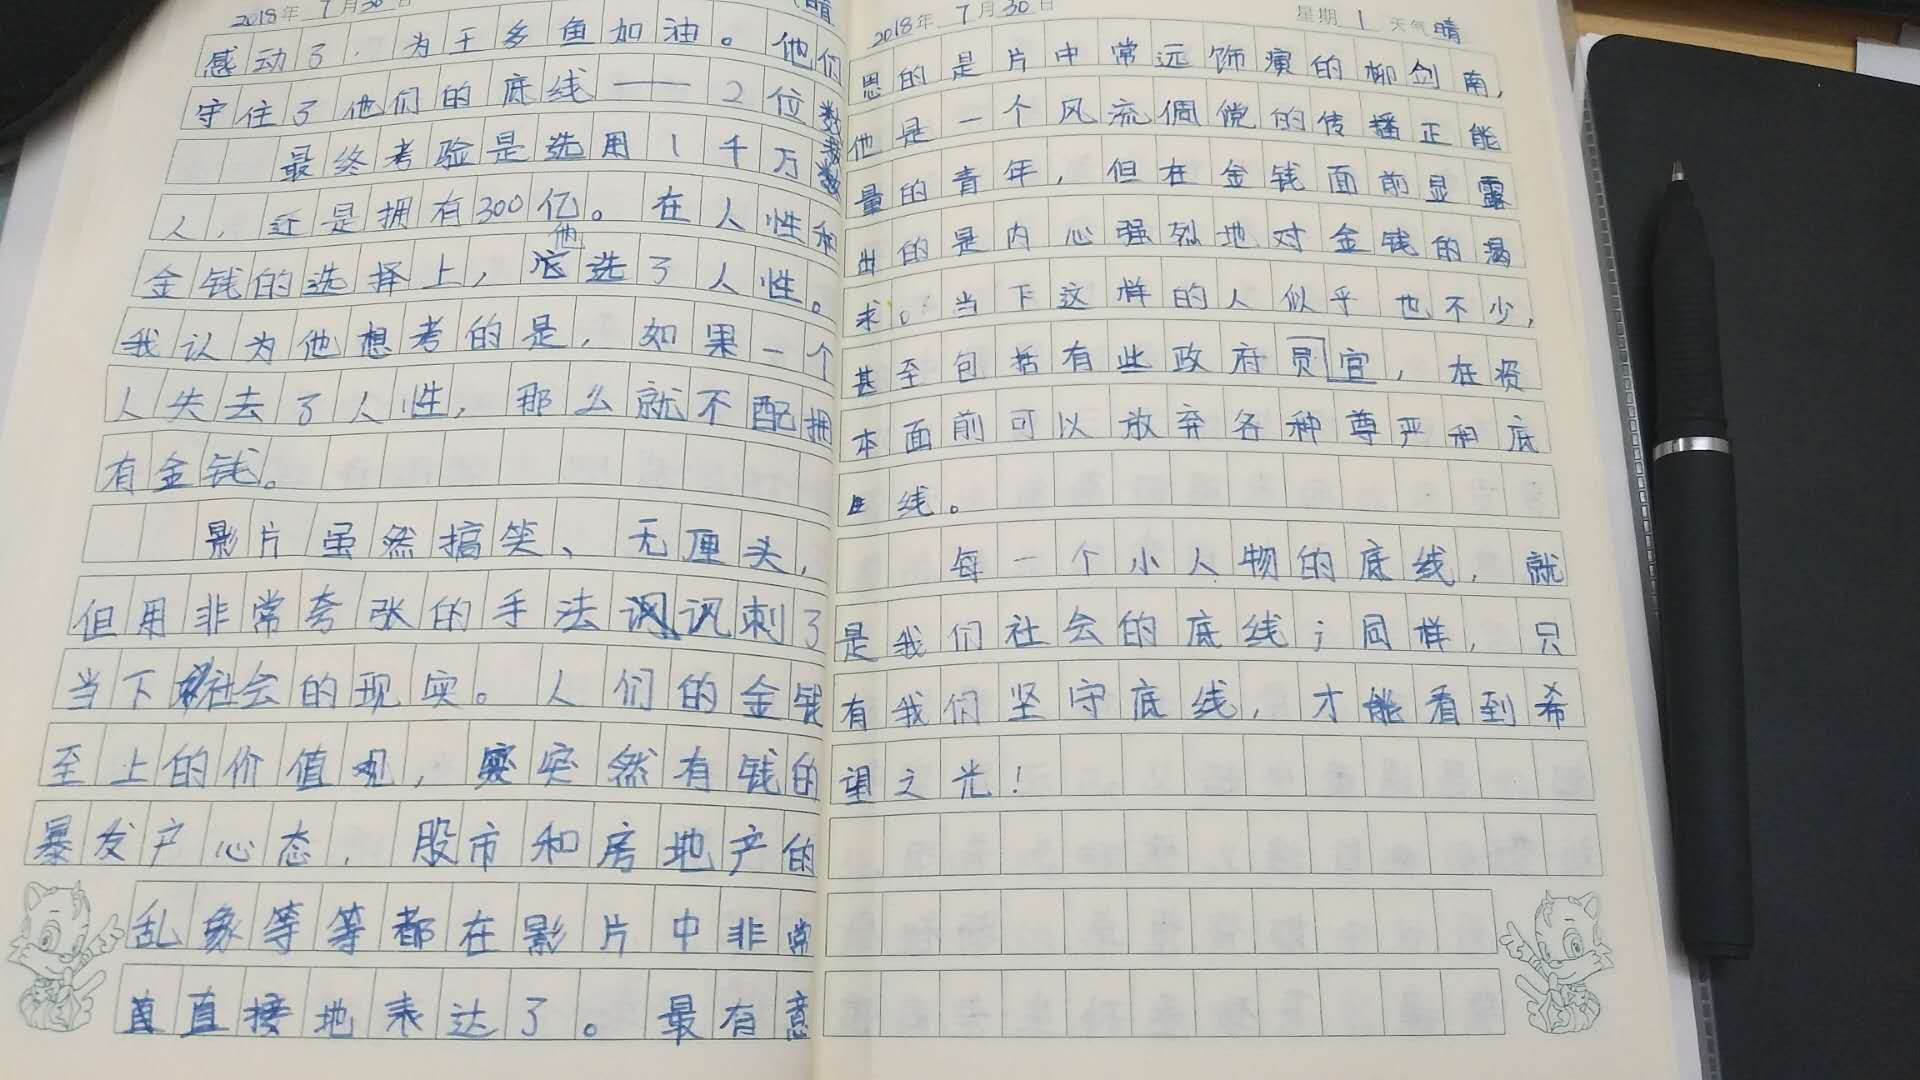 2018年 7月30日 晴
感动了,为王多鱼如油。他们
守住了他们的底线——2位数
最终考验是选用1千万救
人,还是拥有300亿。在人性和
金钱的选择上,他选了人性。
我认为他想考的是,如果一个
人失去了人性,那么就不配拥
有金钱。
影片虽然搞笑、无厘头,
但用非常夸张的手法讽刺了
当下社会的现实。人们的金钱
至上的价值观,突然有钱的
暴发户心态,股市和房地产的
乱象等等都在影片中非常
直接地表达了。最有意
2018年 7月30日 星期1 天气晴
思的是片中常远饰演的柳剑南,
他是一个风流倜傥的传播正能
量的青年,但在金钱面前显露
出的是内心强烈地对金钱的渴
求。当下这样的人似乎也不少,
甚至包括有些政府官员,在资
本面前可以放弃各种尊严和底
线。
每一个小人物的底线,就
是我们社会的底线;同样,只
有我们坚守底线,才能看到希
望之光!